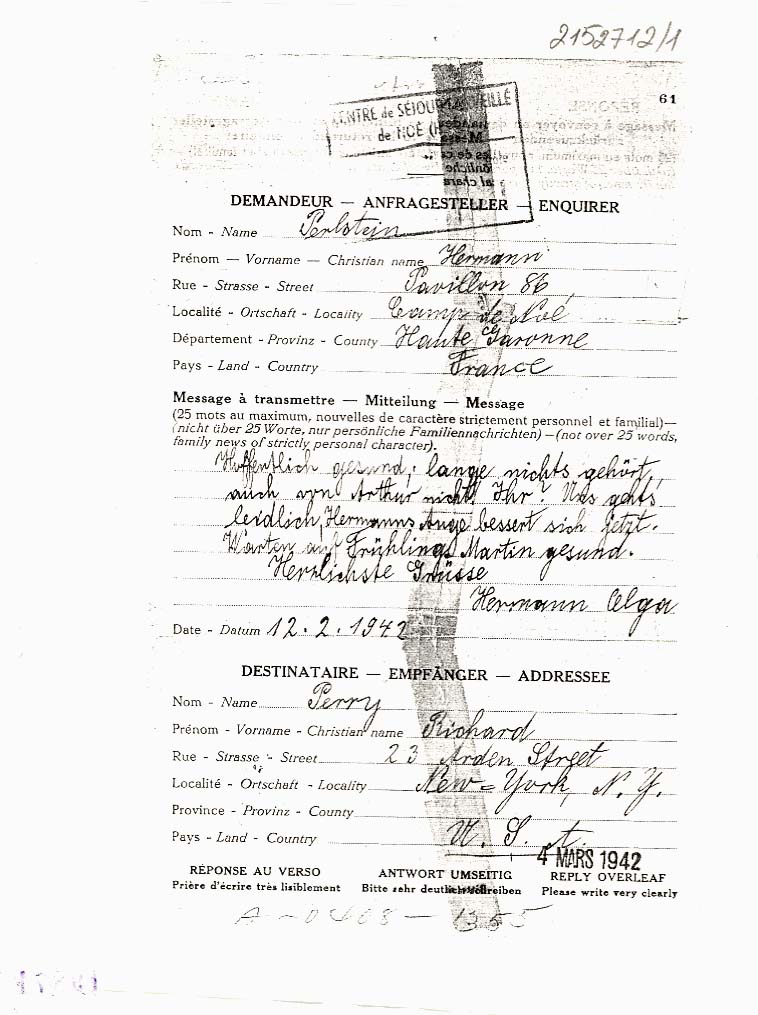 2152712/1
61
CENTRE de SÉJOUR SURVEILLÉ
de NOÉ (H
DEMANDEUR — ANFRAGESTELLER — ENQUIRER
Nom - Name Perlstein
Prénom — Vorname — Christian name Hermann
Rue - Strasse - Street Pavillon 86
Localité - Ortschaft - Locality Camp de Noé
Département - Provinz - County Haute Garonne
Pays - Land - Country France
Message à transmettre — Mitteilung — Message
(25 mots au maximum, nouvelles de caractère strictement personnel et familial)—
(nicht über 25 Worte, nur persönliche Familiennachrichten)—(not over 25 words,
family news of strictly personal character).
Hoffentlich gesund, lange nichts gehört,
auch von Arthur nicht. Ihr? Uns gehts
leidlich, Hermanns Auge bessert sich jetzt.
Warten auf Frühling. Martin gesund.
Herzlichste Grüsse
Hermann Olga
Date - Datum 12.2.1942
DESTINATAIRE — EMPFÄNGER — ADDRESSEE
Nom - Name Perry
Prénom - Vorname - Christian name Richard
Rue - Strasse - Street 23 Arden Street
Localité - Ortschaft - Locality New-York, N.Y.
Province - Provinz - County
Pays - Land - Country U.S.A.
4 MARS 1942
RÉPONSE AU VERSO ANTWORT UMSEITIG REPLY OVERLEAF
Prière d'écrire très lisiblement Bitte sehr deutlich schreiben Please write very clearly
A-0408-1355